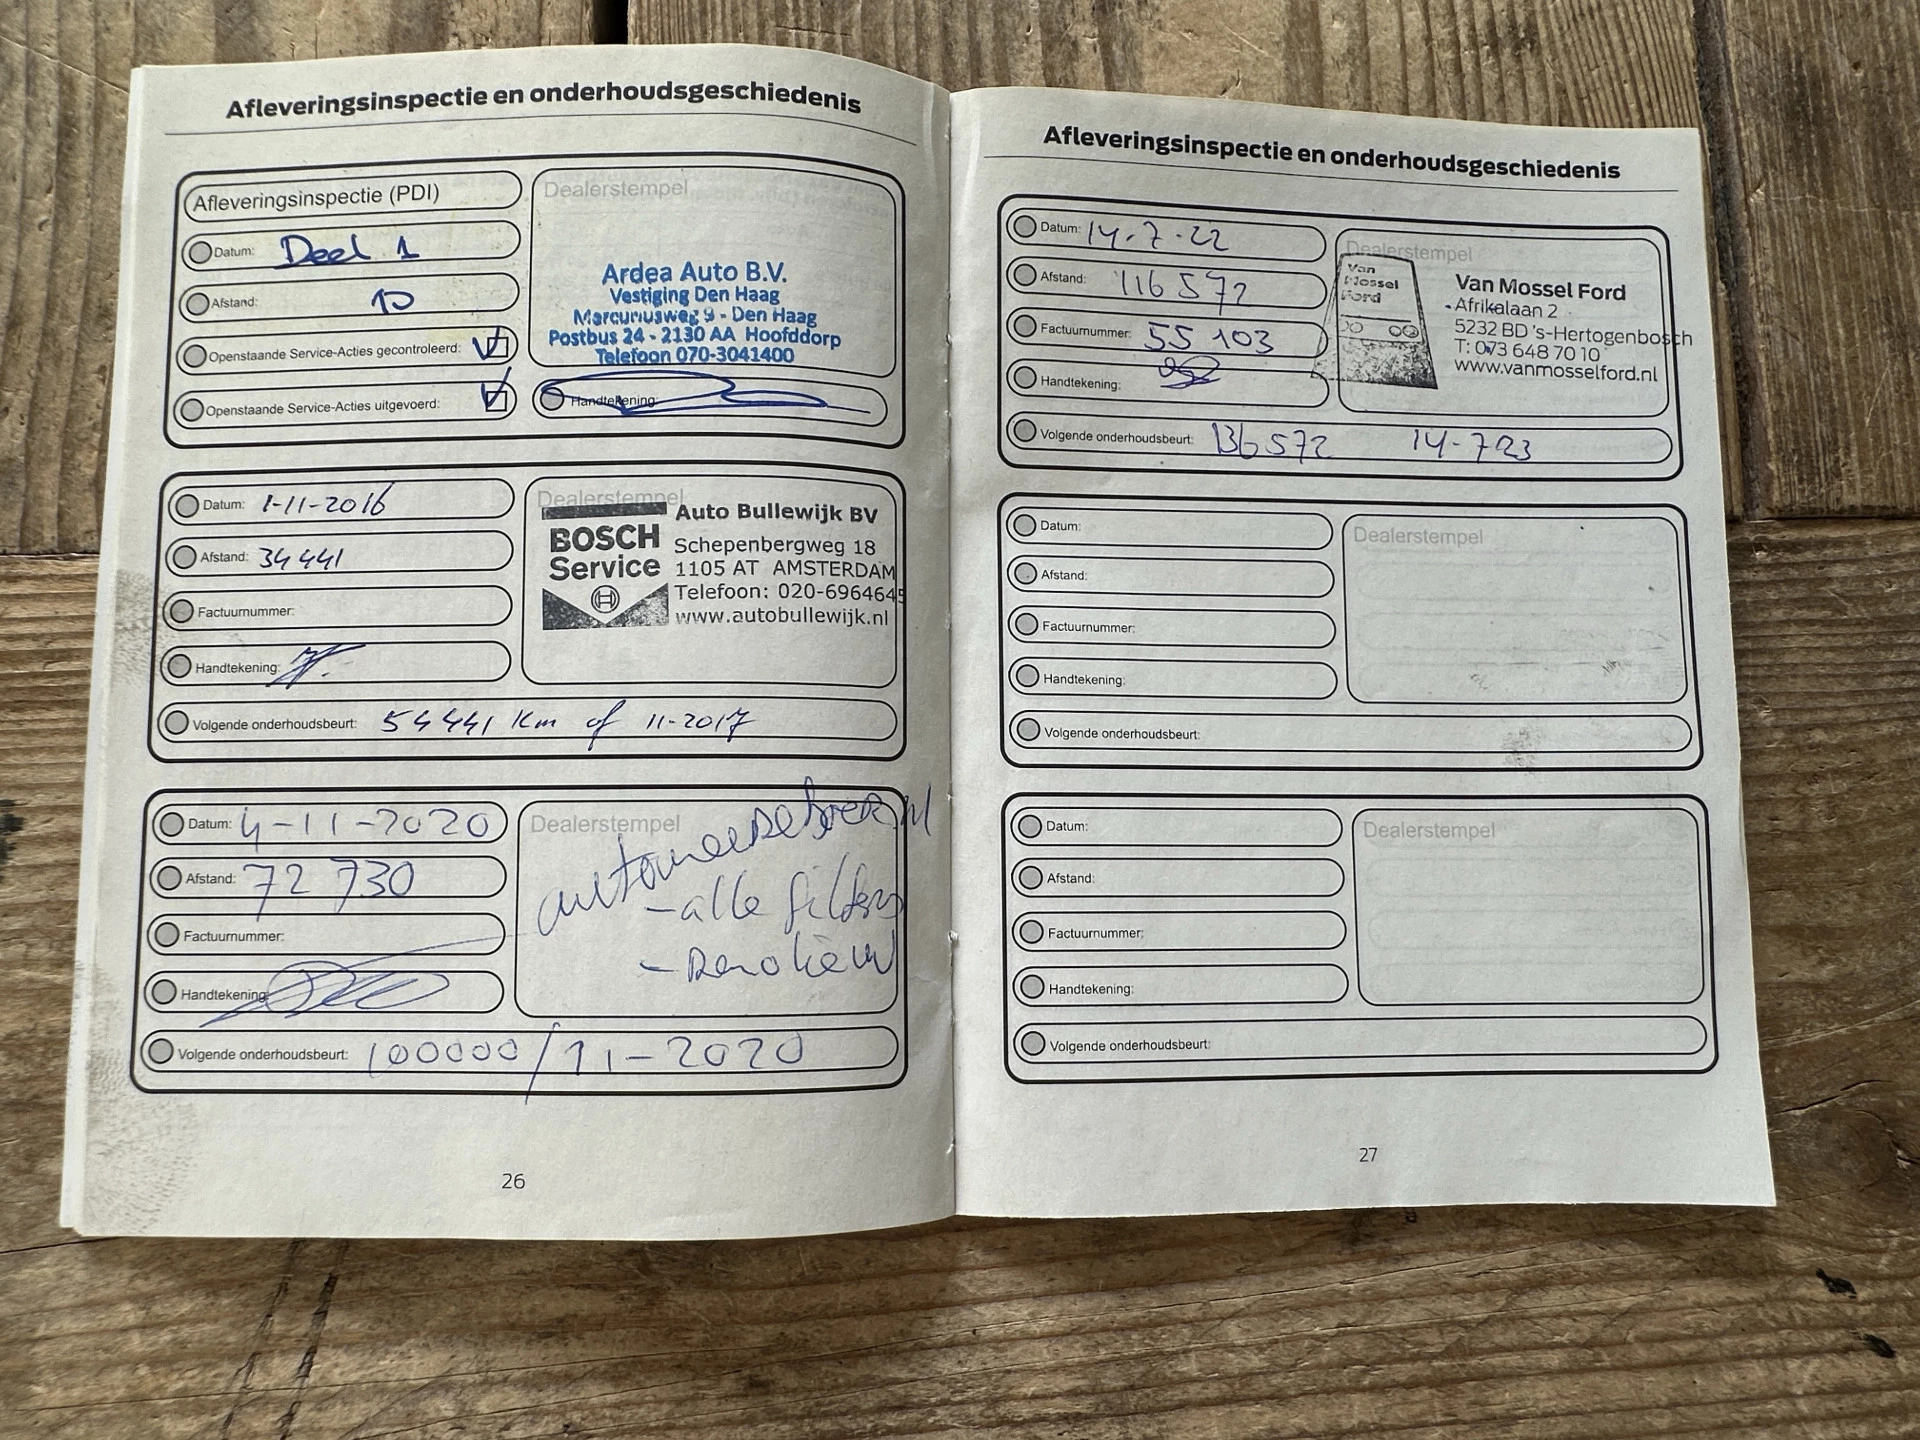 Afleveringsinspectie en onderhoudsgeschiedenis
Afleveringsinspectie (PDI)
Datum: Deel 1
Afstand: 10
Openstaande Service-Acties gecontroleerd:
Openstaande Service-Acties uitgevoerd:
Dealerstempel
Ardea Auto B.V.
Vestiging Den Haag
Marcuriusweg 9 - Den Haag
Postbus 24 - 2130 AA Hoofddorp
Telefoon 070-3041400
Handtekening:
Datum: 1-11-2016
Afstand: 34441
Factuurnummer:
Handtekening:
Dealerstempel
BOSCH
Service
Auto Bullewijk BV
Schepenbergweg 18
1105 AT AMSTERDAM
Telefoon: 020-6964645
www.autobullewijk.nl
Volgende onderhoudsbeurt: 54441 Km of 11-2017
Datum: 4-11-2020
Afstand: 72 730
Factuurnummer:
Handtekening:
Dealerstempel
- alle filters
Volgende onderhoudsbeurt: 100000/11-2020
26
Afleveringsinspectie en onderhoudsgeschiedenis
Datum: 14-7-22
Afstand: 116 572
Factuurnummer: 55 103
Handtekening:
Dealerstempel
Van
Mossel
Ford
Van Mossel Ford
Afrikalaan 2
5232 BD 's-Hertogenbosch
T: 073 648 70 10
www.vanmosselford.nl
Volgende onderhoudsbeurt: 136572 14-723
Datum:
Afstand:
Factuurnummer:
Handtekening:
Dealerstempel
Volgende onderhoudsbeurt:
Datum:
Afstand:
Factuurnummer:
Handtekening:
Dealerstempel
Volgende onderhoudsbeurt:
27